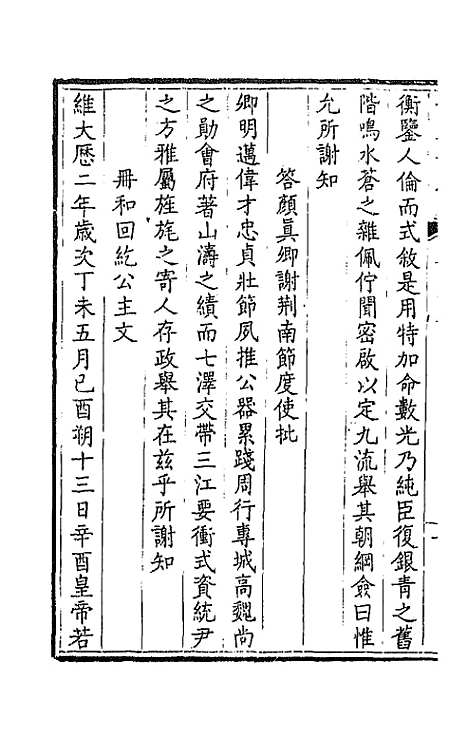 衡鑒人倫而式敘是用特加命數光乃純臣復銀青之舊
階鳴水蒼之雜佩佇聞密啟以定九流舉其朝綱僉曰惟
允所謝知
答顏眞卿謝荆南節度使批
卿明邁偉才忠貞壯節夙推公器累踐周行專城高魏尚
之勛會府著山濤之績而七澤交帶三江要衝式資統尹
之方雅屬旌旄之寄人存政舉其在玆乎所謝知
冊和回紇公主文
維大厯二年歳次丁未五月已酉朔十三日辛酉皇帝若